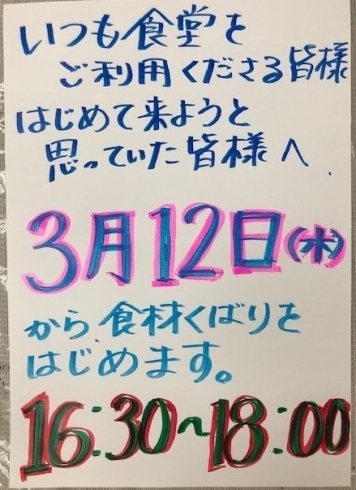 いつも食堂を
ご利用くださる皆様
はじめて来ようと
思っていた皆様へ
3月12日(木)
から食材くばりを
はじめます。
16:30~18:00